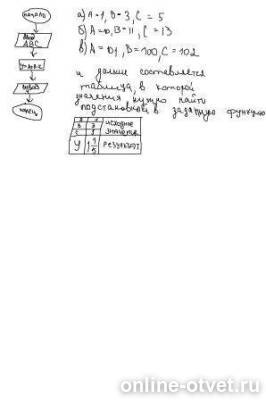 начало
Ввод
ABC
вывод
конец
а) A=1, B=3, C=5
б) A=10, B=11, C=13
в) A=101, B=100, C=102
и дальше составляется
таблица, в которой
значения нужно найти
подстановкой в заданную функцию
исходные
значения
У результат
online-otvet.ru